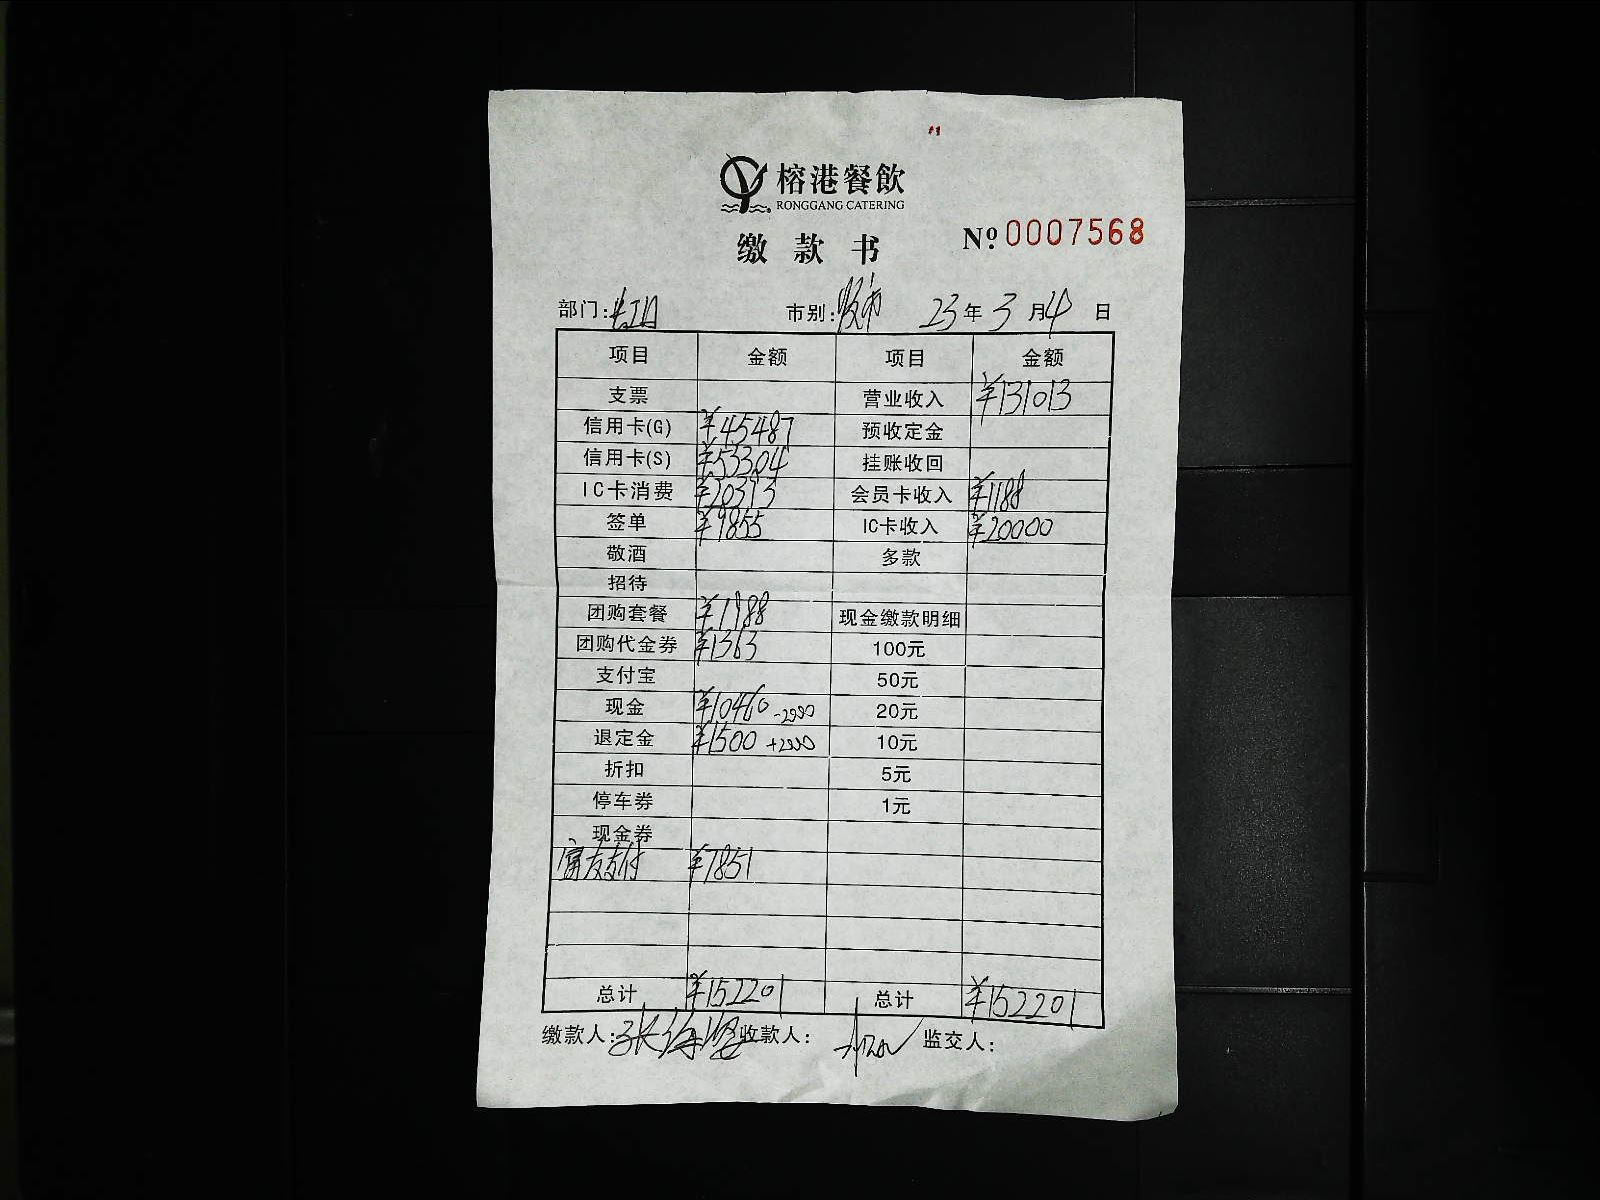 榕港餐飲
RONGGANG CATERING
缴款书
№ 0007568
部门: 市别: 23年3月4日
项目 金额 项目 金额
支票 营业收入 ¥131013
信用卡(G) ¥45487 预收定金
信用卡(S) ¥53304 挂账收回
IC卡消费 ¥20393 会员卡收入 ¥1188
签单 ¥9855 IC卡收入 ¥20000
敬酒 多款
招待
团购套餐 ¥1988 现金缴款明细
团购代金券 ¥1363 100元
支付宝 50元
现金 ¥10460 -2000 20元
退定金 ¥1500 +2000 10元
折扣 5元
停车券 1元
现金券
富友支付 ¥7851
总计 ¥152201 总计 ¥152201
缴款人: 收款人: 监交人: